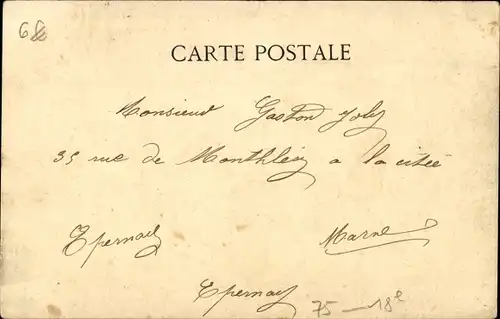 68
CARTE POSTALE
Monsieur Gaston Joly
35 rue de Monthléry a la citée
Epernay Marne
Epernay
75 - 18e